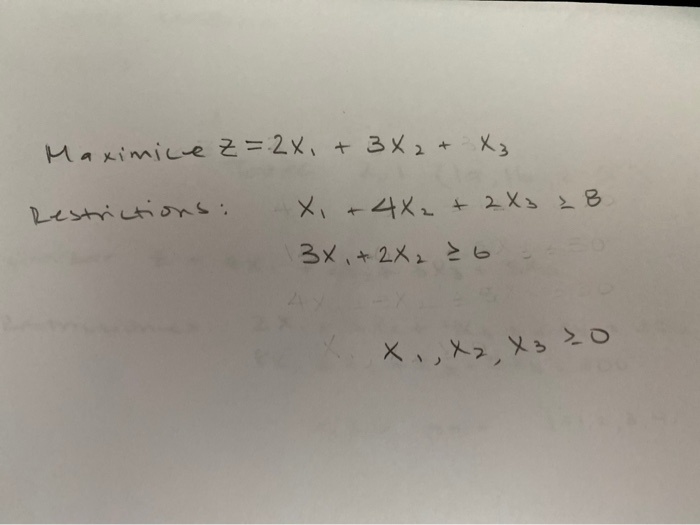 Maximice Z = 2X₁ + 3X₂ + X₃
Restrictions: X₁ + 4X₂ + 2X₃ ≥ 8
3X₁ + 2X₂ ≥ 6
X₁, X₂, X₃ ≥ 0